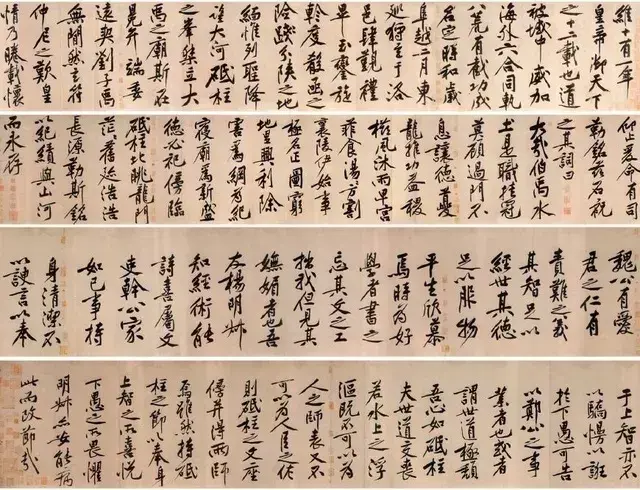 維十有一年
皇帝御天下
之十二載也道
被域中威加
海外六合同軌
八荒有截功成
名定時和歲
阜越二月東
巡狩至于洛
邑肆觀禮
畢玉鑾旋
軫度殽函之
險踐分陝之地
緬惟列聖降
望大河砥柱
之峯桀立大
禹之廟斯在
冕弁端委
遠契劉子禹
無閒然玄符
仲尼之歎皇
情乃睠載懷
仰止爰命有司
勒銘茲石祝
之其詞曰
大哉伯禹水
土是職挂冠
莫顧過門不
息讓德夔
龍推功益稷
櫛風沐雨卑宮
菲食湯方割
襄陵伊始事
極名正圖窮
地里興利除
害爲綱爲紀
寢廟爲新盛
德必祀傍臨
砥柱北眺龍門
茫茫舊迹浩浩
長源勒斯銘
以紀績與山河
而永存
魏公有愛
君之仁有
責難之義
其智足以
經世其德
足以服物
平生欣慕
焉時爲好
學者書之
忘其文之工
拙我但見其
嫵媚者也吾
友楊明叔
知經術能
詩喜屬文
吏幹公家
如己事持
身清潔不
以諛言以奉
于上智亦不
以驕慢以誑
於下愚可告
以鄭公之事
業者也或者
謂世道極頹
吾心如砥柱
夫世道交喪
若水上之浮
漚既不可以爲
人之師表又不
可以爲人臣之佐
則砥柱之文座
傍并得兩師
焉雖然持砥
柱之節以奉身
上智之所喜悅
下愚之所畏懼
明叔亦安能病
此而改節哉